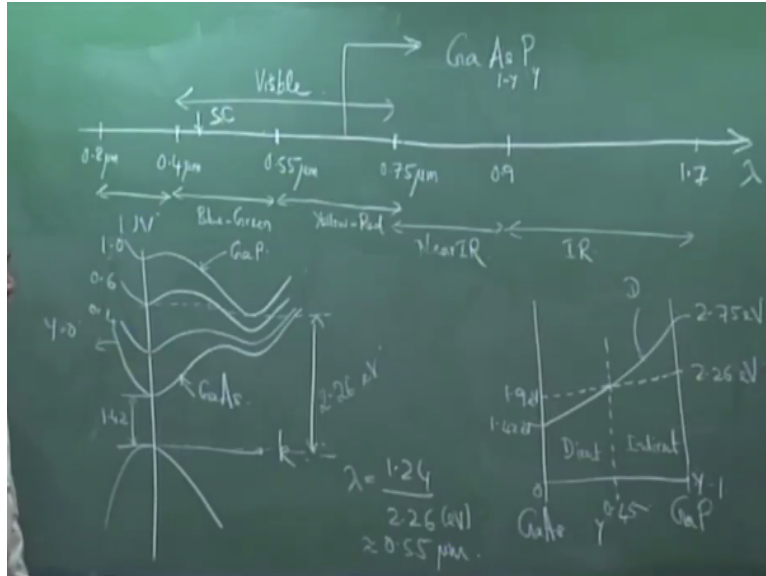 Ga As P
1-y y
Visble
SC
0.2μm 0.4μm 0.55μm 0.75μm 0.9 1.7 λ
UV Blue-Green Yellow-Red Near IR IR
1.0
GaP
0.6
y=0
GaAs
1.42
2.26 eV
k
λ = 1.24
2.26 (eV)
≈ 0.55 μm.
D
2.75eV
2.26 eV
Direct Indirect
0 0.45 y=1
GaAs y GaP